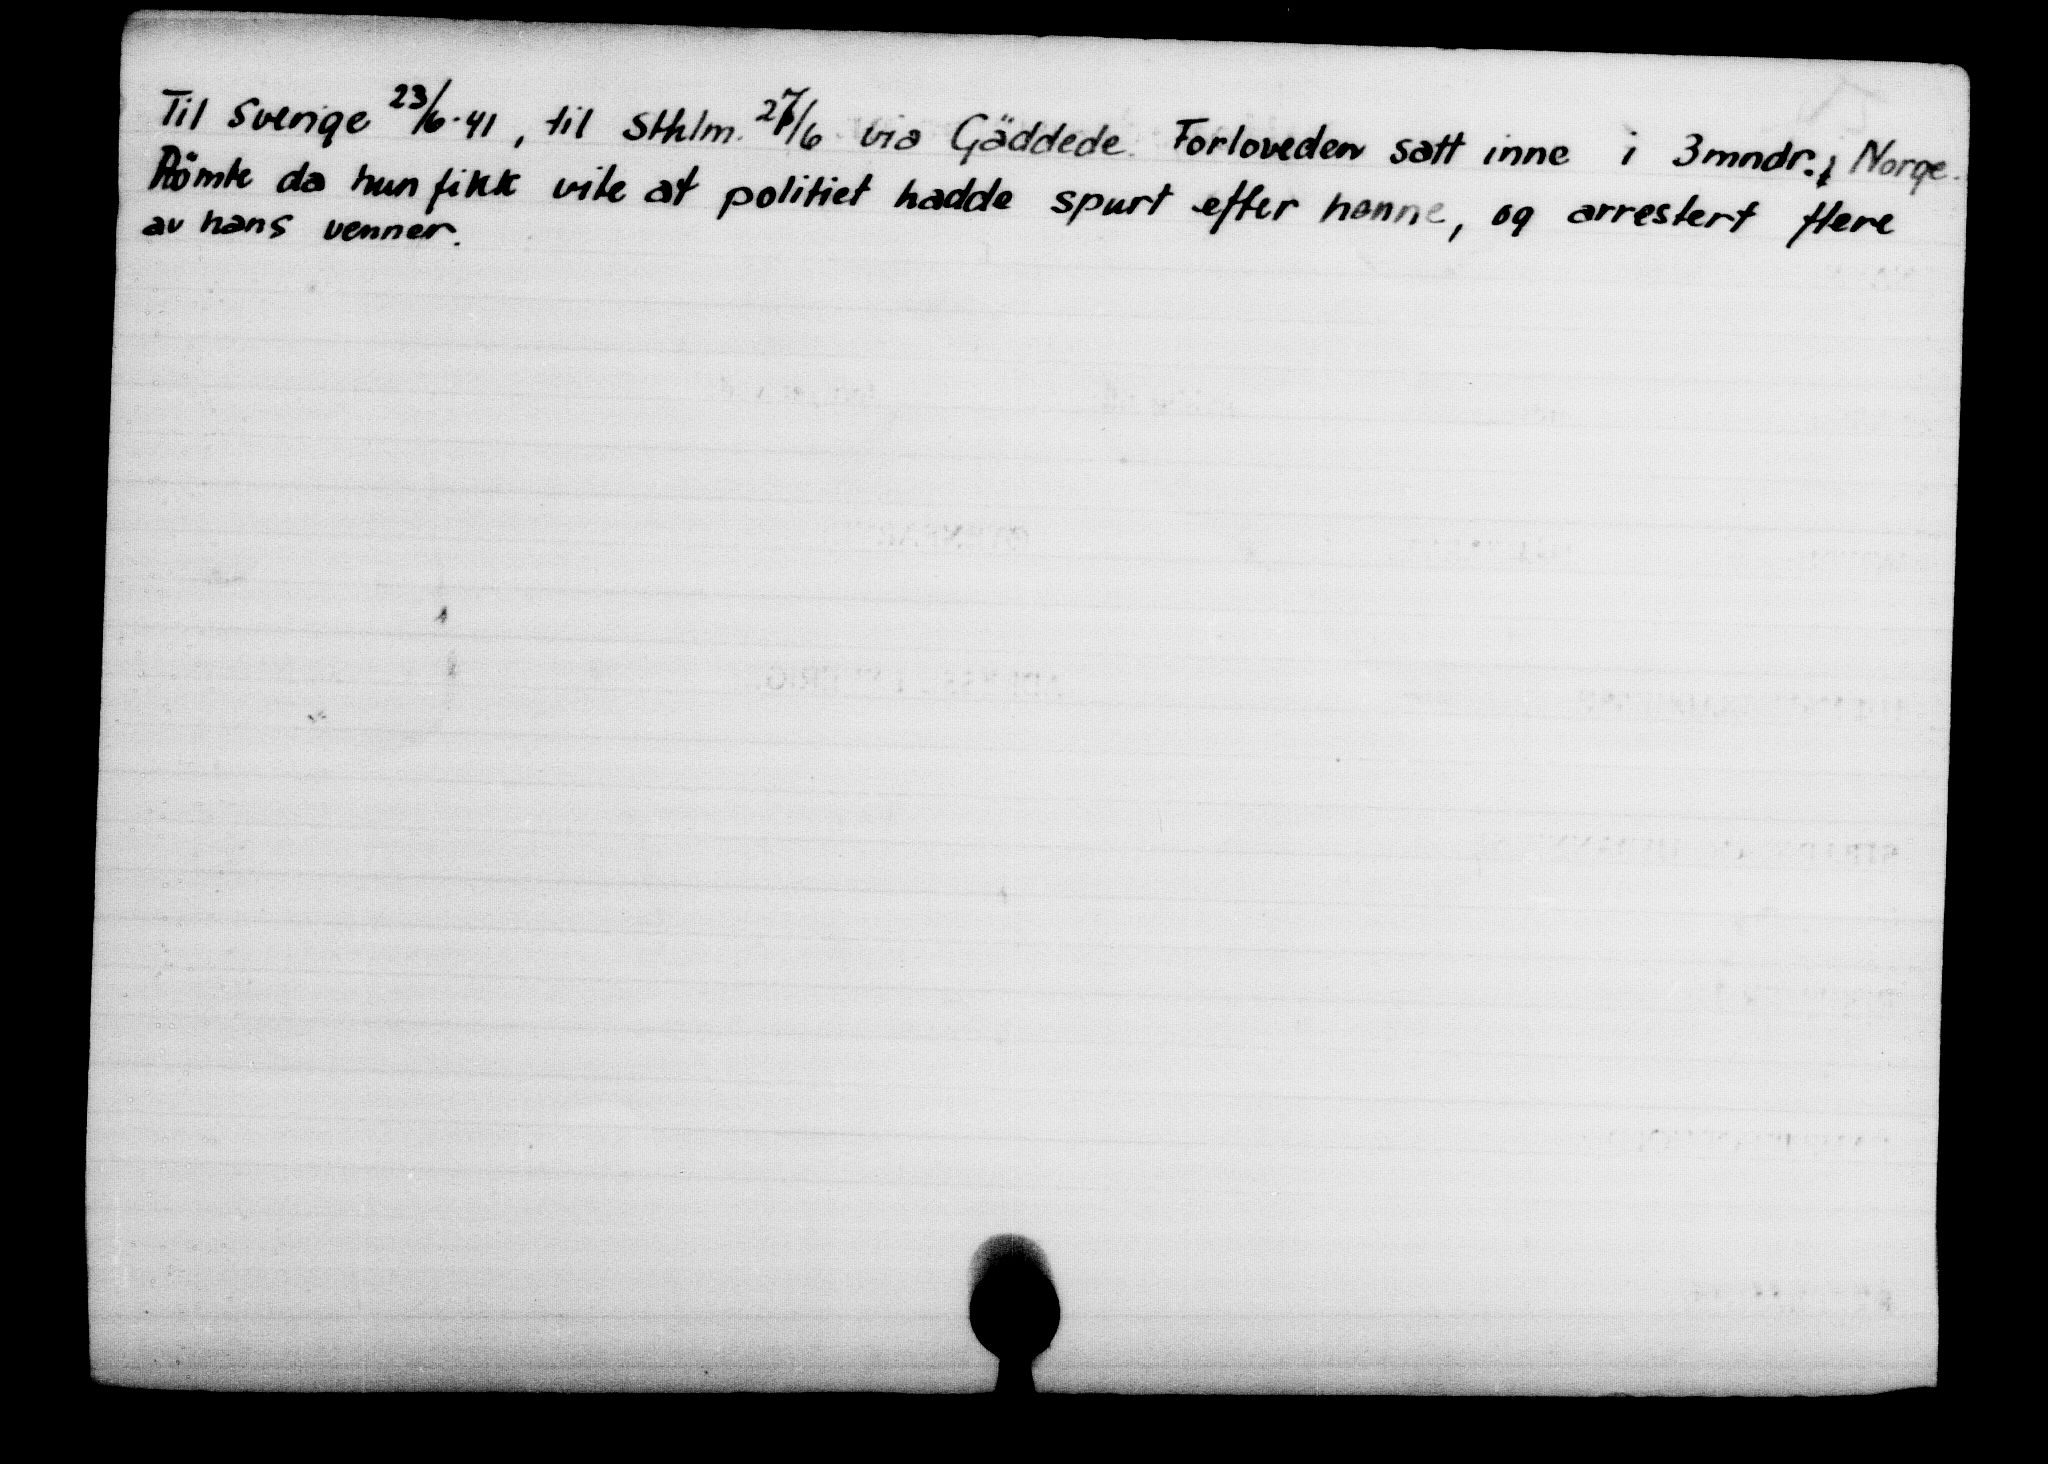 Til Sverige 23/6-41, til Sthlm. 27/6 via Gäddede. Forloveden satt inne i 3 mndr. i Norge.
Römte da hun fikk vite at politiet hadde spurt efter henne, og arrestert flere
av hans venner.